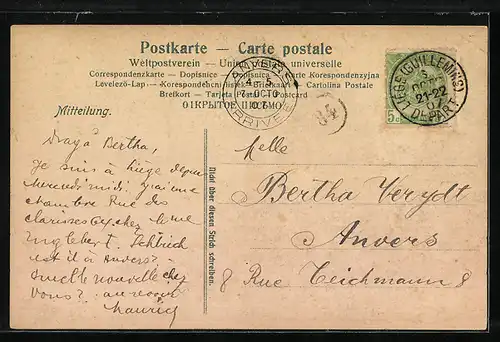 Postkarte — Carte postale
Weltpostverein — Union postale universelle
Correspondenzkarte — Dopisnice — Dopisnica — Karta Korespondencyjna
Levelező-Lap — Korespondenční lístek — Briefkaart — Cartolina Postale
Brefkort — Tarjeta Postal — Postcard
ОТКРЫТОЕ ПИСЬМО
ANVERS
4-5
7-OCTO
07
ARRIVÉE
84
LIEGE (GUILLEMINS)
21-22
07
DEPART
5c
Mitteilung.
Bertha,
Je suis à Liège depuis
une
chambre Rue des
clarisses chez
Englebert.
est il à Anvers?
Quelle nouvelle chez
Vous? au revoir
Maurice
Nicht über diesen Strich schreiben.
Melle
Bertha
Anvers
8 Rue Teichmann 8